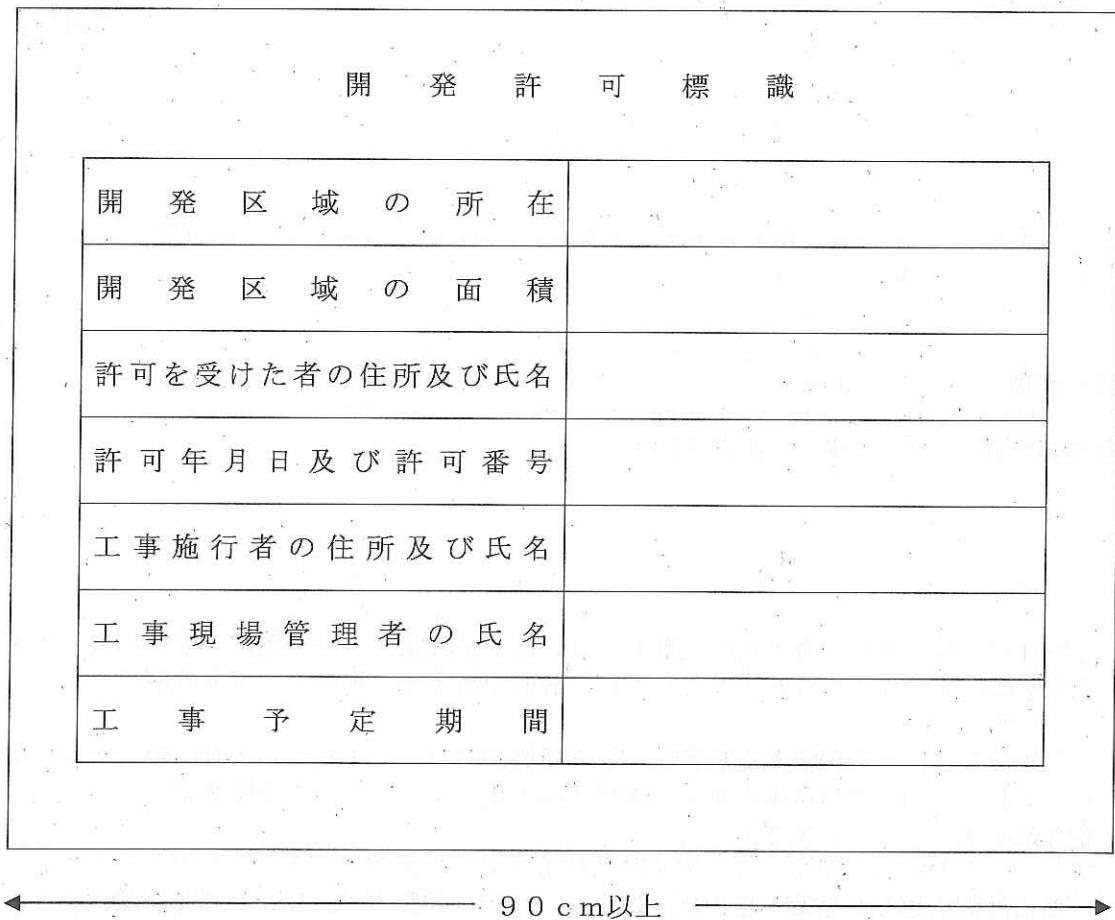 開発許可標識
開発区域の所在
開発区域の面積
許可を受けた者の住所及び氏名
許可年月日及び許可番号
工事施行者の住所及び氏名
工事現場管理者の氏名
工事予定期間
90cm以上